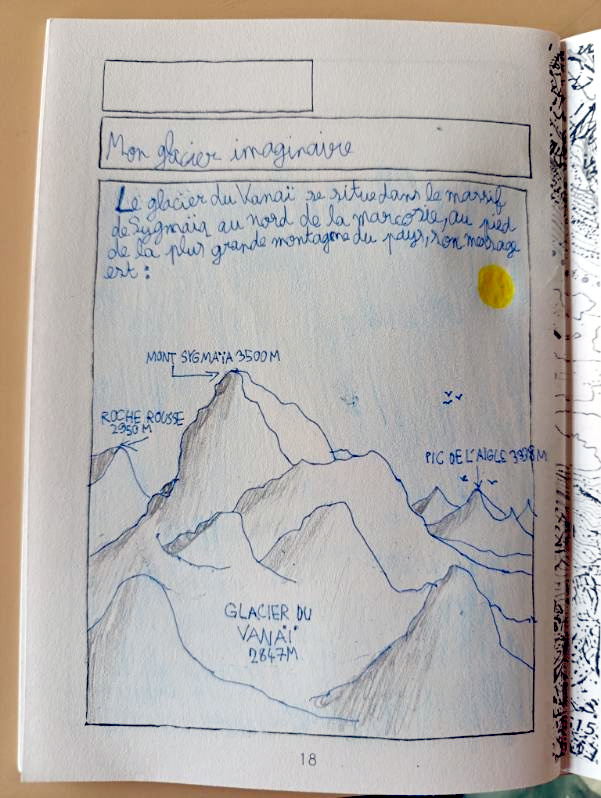 Mon glacier imaginaire
Le glacier du Vanaï se situe dans le massif
de Sygmaïa au nord de la marcosie, au pied
de la plus grande montagne du pays, son message
est :
MONT SYGMAÏA 3500M
ROCHE ROUSSE
2950 M
PIC DE L'AIGLE M
GLACIER DU
VANAÏ
2847M
18